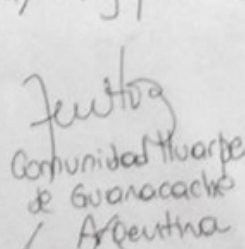 Comunidad Huarpe
de Guanacache
Argentina